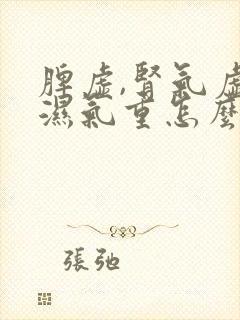 脾虛,腎氣虛
濕氣重怎麼
張弛